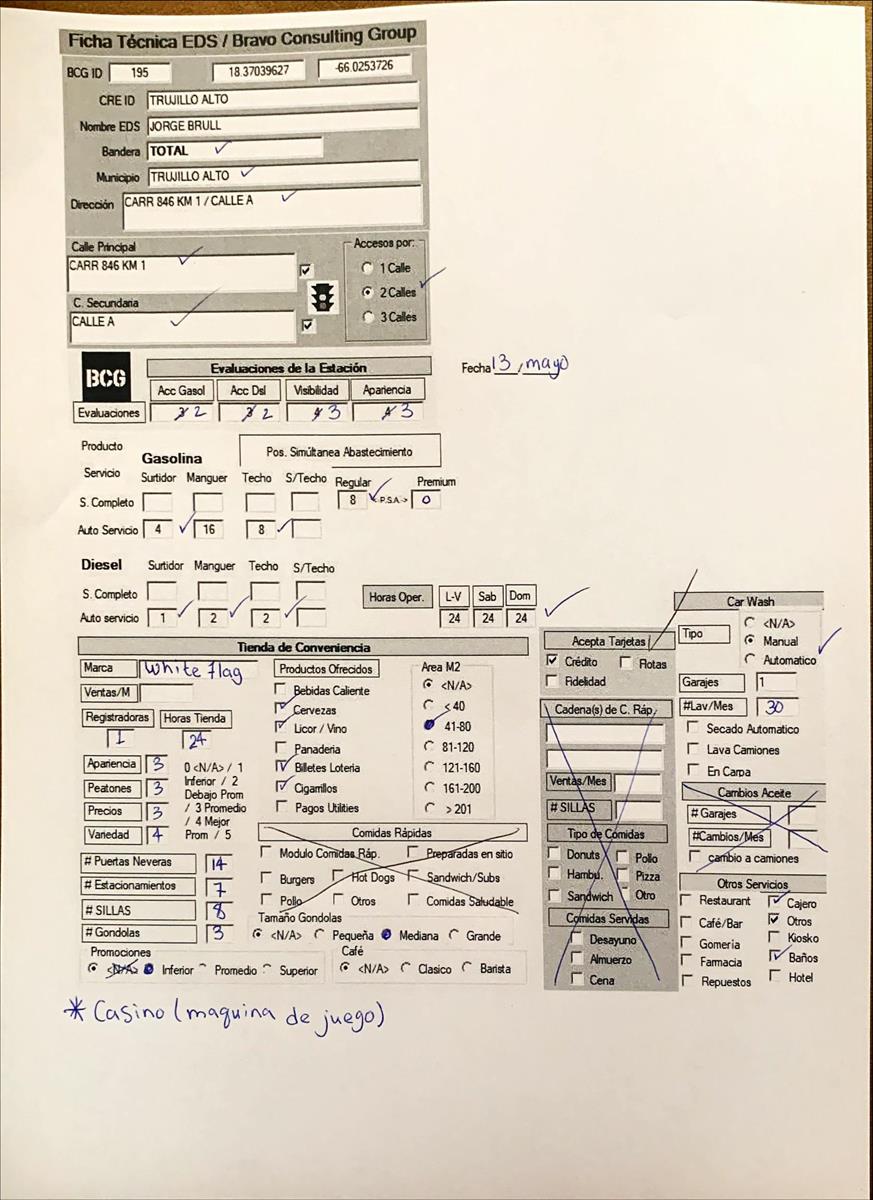 Ficha Técnica EDS / Bravo Consulting Group
BCG ID 195 18.37039627 -66.0253726
CRE ID TRUJILLO ALTO
Nombre EDS JORGE BRULL
Bandera TOTAL
Municipio TRUJILLO ALTO
Dirección CARR 846 KM 1 / CALLE A
Calle Principal
CARR 846 KM 1
C. Secundaria
CALLE A
Accesos por:
1 Calle
2 Calles
3 Calles
BCG
Evaluaciones de la Estación
Acc Gasol Acc Dsl Visibilidad Apariencia
Evaluaciones 3 2 3 2 4 3 4 3
Fecha 13 , mayo
Producto
Servicio
Gasolina
Pos. Simúltanea Abastecimiento
Surtidor Manguer Techo S/Techo Regular Premium
S. Completo 8 <-P.S.A-> 0
Auto Servicio 4 16 8
Diesel Surtidor Manguer Techo S/Techo
S. Completo
Auto servicio 1 2 2
Horas Oper. L-V Sab Dom
24 24 24
Tienda de Conveniencia
Marca White flag
Ventas/M
Registradoras Horas Tienda
1 24
Apariencia 3
Peatones 3
Precios 3
Variedad 4
0 <N/A> / 1
Inferior / 2
Debajo Prom
/ 3 Promedio
/ 4 Mejor
Prom / 5
# Puertas Neveras 14
# Estacionamientos 7
# SILLAS 8
# Gondolas 3
Promociones
<N/A> Inferior Promedio Superior
Productos Ofrecidos
Bebidas Caliente
Cervezas
Licor / Vino
Panaderia
Billetes Loteria
Cigarrillos
Pagos Utilities
Area M2
<N/A>
< 40
41-80
81-120
121-160
161-200
> 201
Comidas Rápidas
Modulo Comidas Ráp. Preparadas en sitio
Burgers Hot Dogs Sandwich/Subs
Pollo Otros Comidas Saludable
Tamaño Gondolas
<N/A> Pequeña Mediana Grande
Café
<N/A> Clasico Barista
Acepta Tarjetas
Crédito Flotas
Fidelidad
Cadena(s) de C. Ráp.
Ventas/Mes
# SILLAS
Tipo de Comidas
Donuts Pollo
Hambu. Pizza
Sandwich Otro
Comidas Servidas
Desayuno
Almuerzo
Cena
Car Wash
Tipo
<N/A>
Manual
Automatico
Garajes 1
#Lav/Mes 30
Secado Automatico
Lava Camiones
En Carpa
Cambios Aceite
# Garajes
#Cambios/Mes
cambio a camiones
Otros Servicios
Restaurant Cajero
Café/Bar Otros
Gomería Kiosko
Farmacia Baños
Repuestos Hotel
* Casino (maquina de juego)